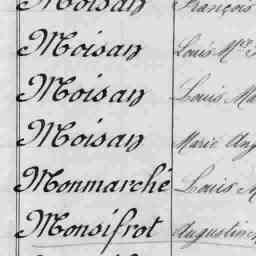 Moisan François
Moisan Louis Mie
Moisan Louis Ma
Moisan Marie Ang
Monmarché Louis M
Monsifrot Augustine